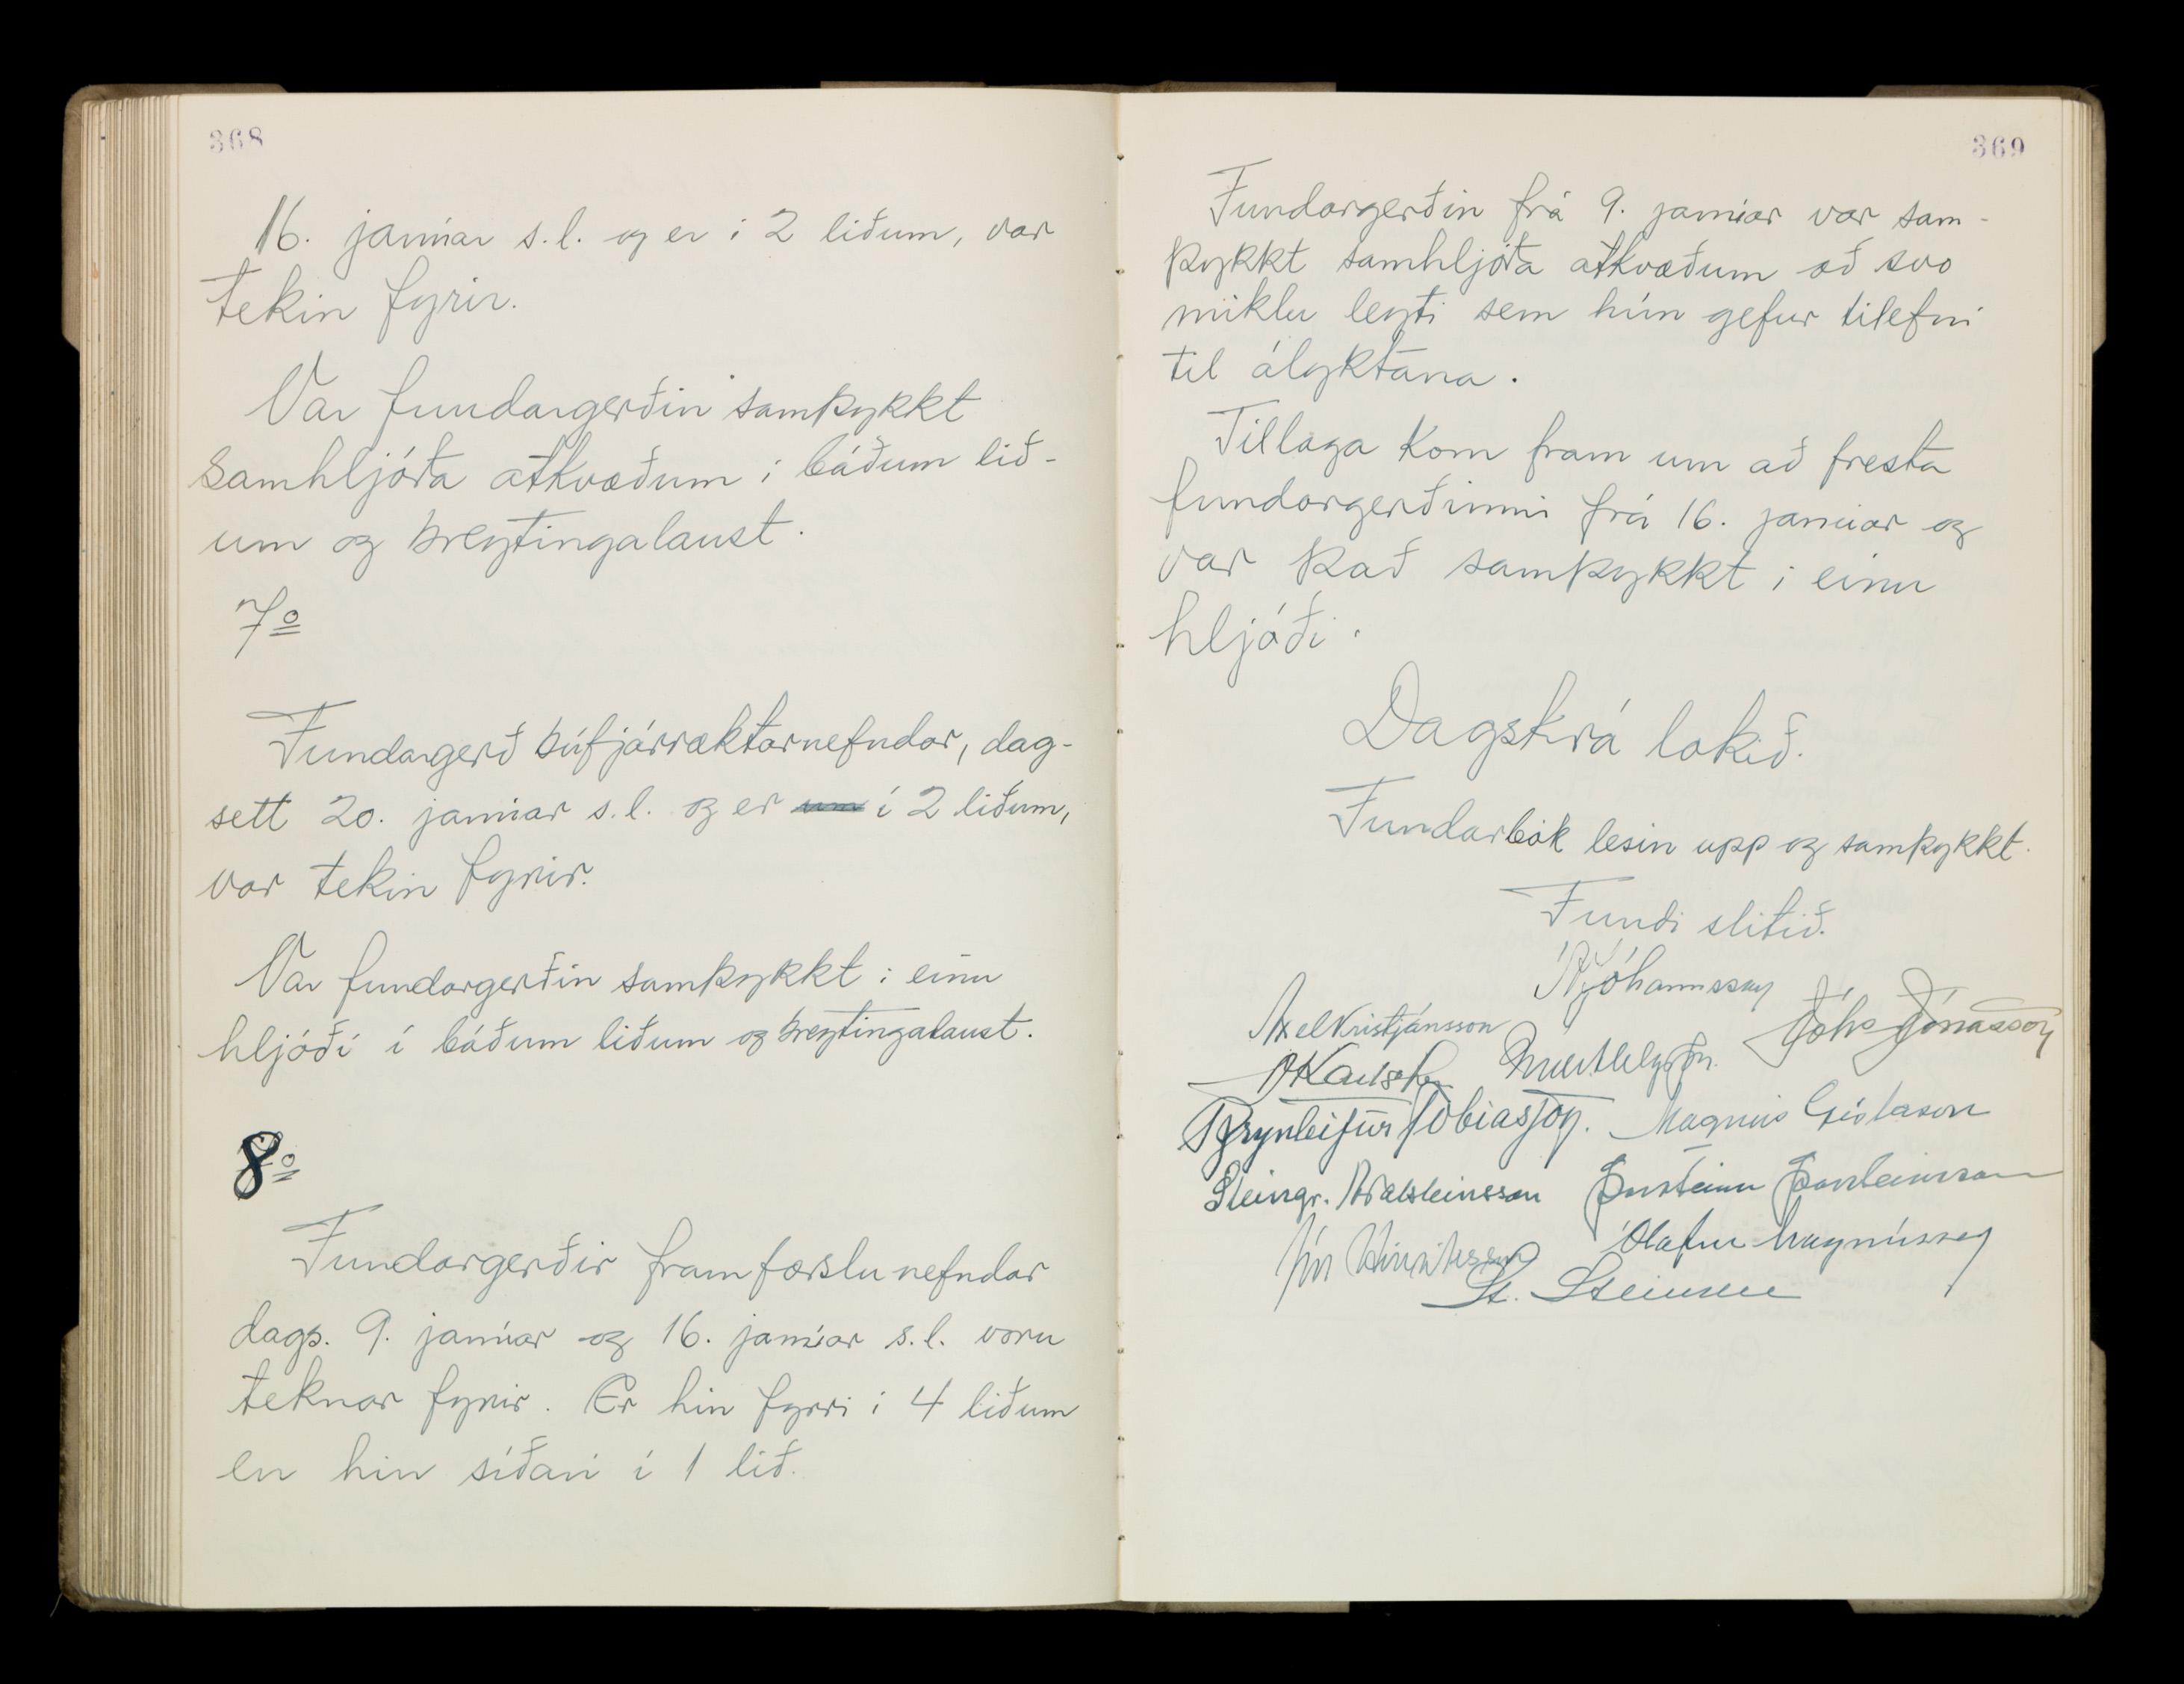 368
16. janúar s.l. og er í 2 liðum, var
tekin fyrir.
Var fundargerðin samþykkt
samhljóða atkvæðum í báðum lið-
um og breytingalaust.
7o
Fundargerð búfjárræktarnefndar, dag-
sett 20. janúar s.l. og er um í 2 liðum,
var tekin fyrir.
Var fundargerðin samþykkt í einu
hljóði í báðum liðum og breytingalaust.
8o
Fundargerðir framfærslunefndar
dags. 9. janúar og 16. janúar s.l. voru
teknar fyrir. Er hin fyrri í 4 liðum
en hin síðari í 1 lið.
369
Fundargerðin frá 9. janúar var sam-
þykkt samhljóða atkvæðum að svo
miklu leyti sem hún gefur tilefni
til ályktana.
Tillaga kom fram um að fresta
fundargerðinni frá 16. janúar og
var það samþykkt í einu
hljóði.
Dagskrá lokið.
Fundarbók lesin upp og samþykkt.
Fundi slitið.
Jóhannsson
Axel Kristjánsson
Jóhs Jónasson
Brynleifur Tobiasson. Magnús Gíslason
Steingr. Aðalsteinsson Þorsteinn Þorsteinsson
Ólafur Magnússon
St. Steinsen